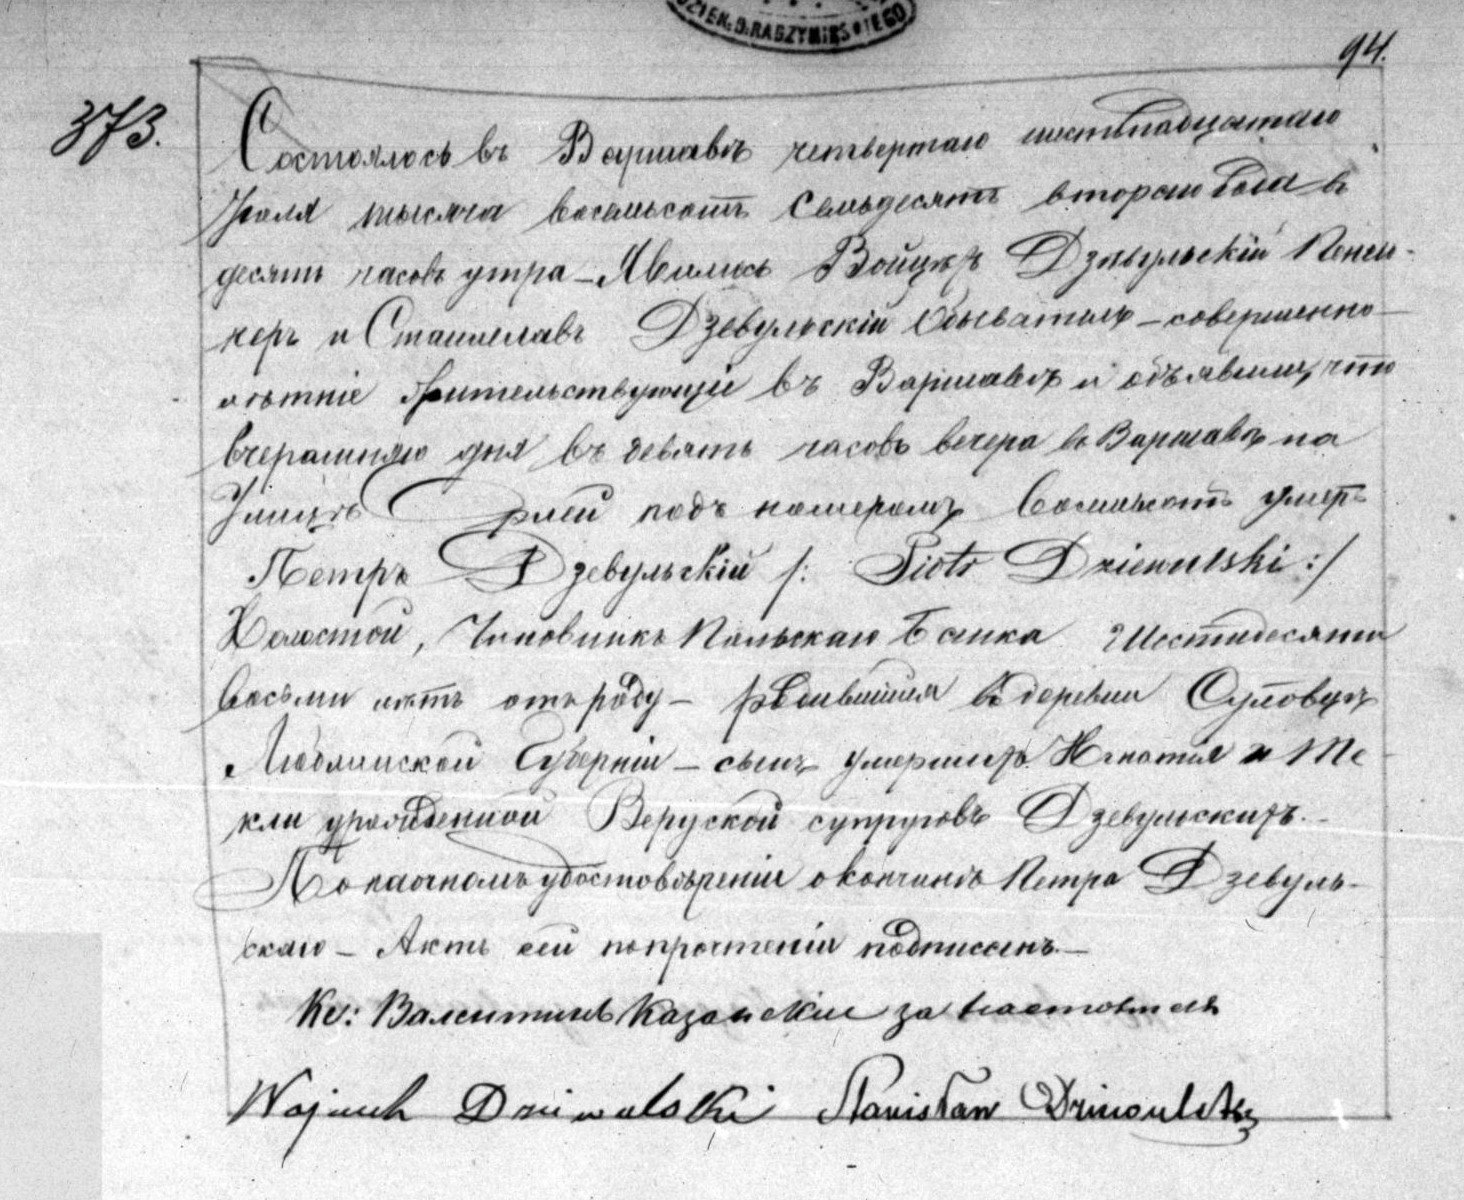 94.
373.
Состоялось въ Варшавѣ четвертаго шестьнадцатаго
Іюля тысяча восемьсотъ семьдесятъ втораго года въ
десять часовъ утра – Явились Войцѣхъ Дзѣвульскій Пенсіо-
неръ и Станиславъ Дзевульскій Обыватель – совершенно–
лѣтніе жительствующіе въ Варшавѣ и объявили, что
вчерашняго дня въ девять часовъ вечера въ Варшавѣ на
Улицѣ подъ номеромъ восемьсотъ умеръ
Петръ Дзевульскій /: Piotr Dziewulski :/
Холостой, Чиновникъ Польскаго Банка Шестидесяти
восьми лѣтъ отъ роду – родившійся въ деревни
Люблинской Губерніи – сынъ умершихъ Игнатія и Те-
кли урожденной Веруской супруговъ Дзевульскихъ. –
По наочномъ удостовѣреніи о кончинѣ Петра Дзевуль-
скаго – Актъ сей по прочтеніи подписанъ. –
Кс: Валентинъ за настоятеля
Wojciech Dziewulski Stanisław Dziewulski